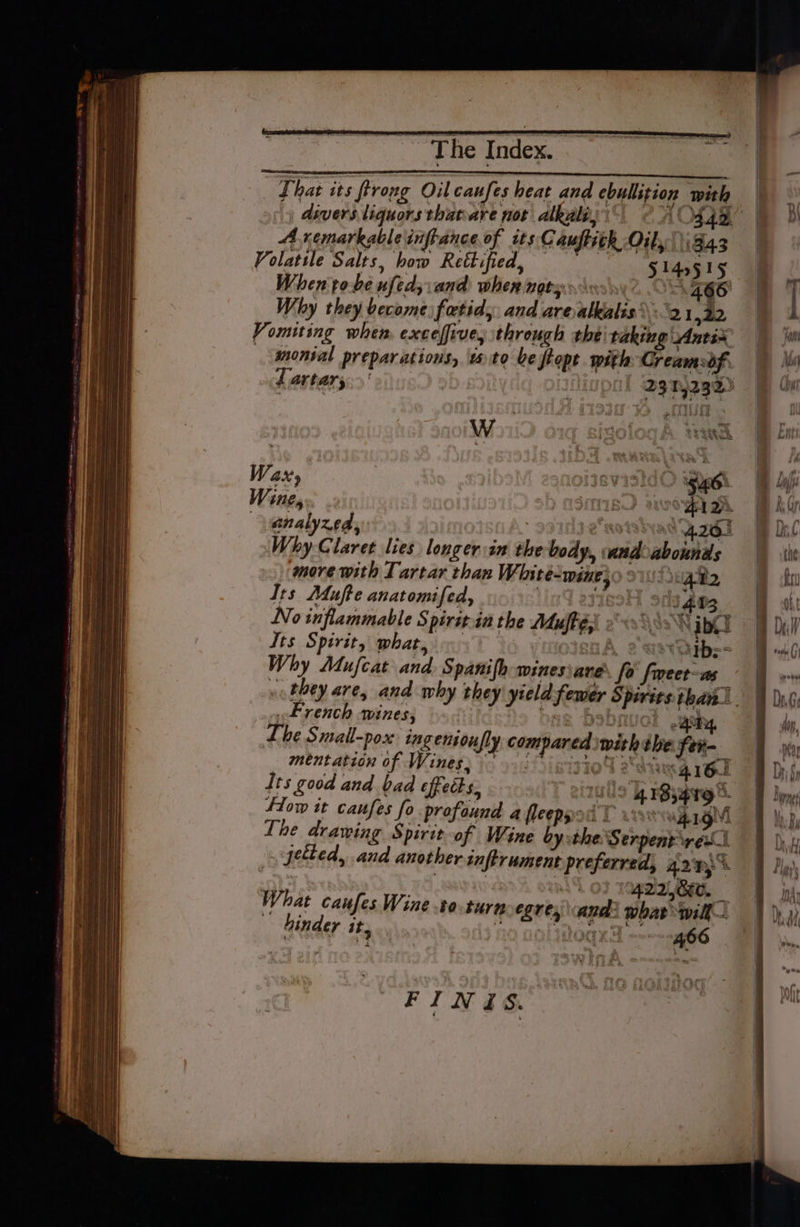 The Index.
That its ſtrong Oil cauſes heat and ebullition with
divers liquors that are not alkali,
A remarkable inſtance of its Cauſtick Oil, 343
Volatile Salts, how Rectified, 514, 515
When to be uſed, and when not, 466
Why they become fœtid, and are alkalis 21, 22
Vomiting when exceſſive, through the taking Anti-
monial preparations, is to be ſtopt with Cream of
Tartar, 231, 232
W
Wax,
Wine,
analyzed, 420
Why Claret lies longer in the body, and abounds
more with Tartar than White-wine, 412
Its Muſte anatomiſed, 413
No inflammable Spirit in the Muſte, ibid
Its Spirit, what, ib.
Why Muſcat and Spaniſh wines are ſo ſweet as
they are, and why they yield fewer Spirits than
French wines,
The Small-pox ingeniouſly compared with the fer-
mentation of Wines, 416
Its good and bad effects, 418, 419
How it cauſes ſo profound a ſleep, 419
The drawing Spirit of Wine by the Serpent re-
jected, and another inſtrument preferred, 421,
422, &c.
What cauſes Wine to turn egre, and what will
hinder it, 466
FINIS.